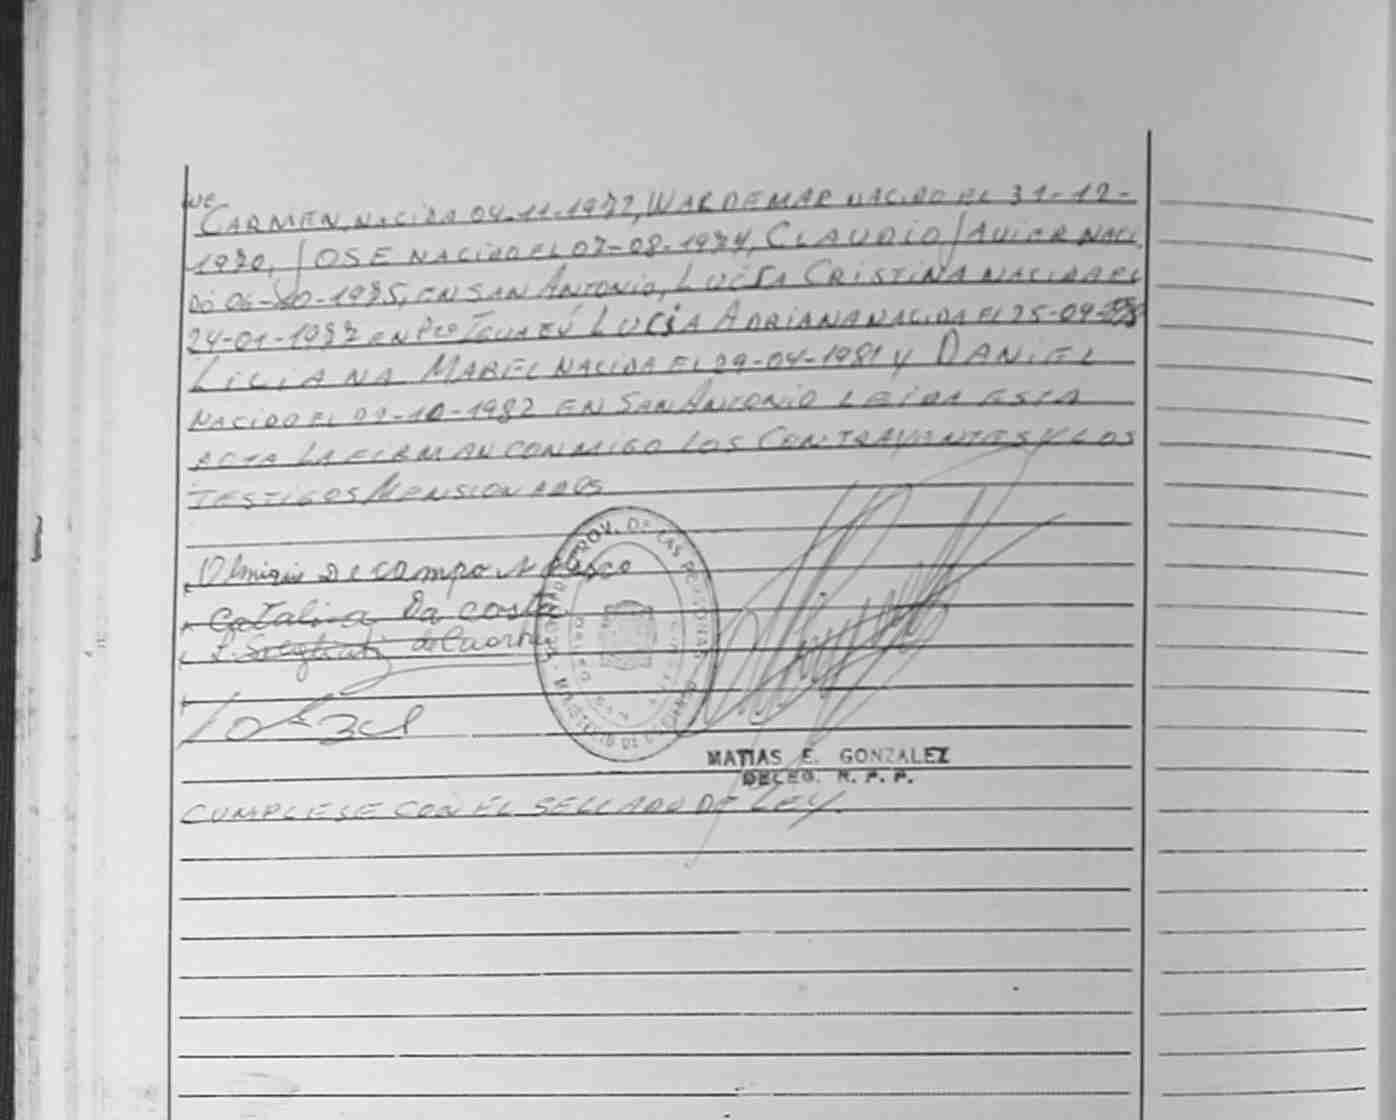 ue
CARMEN, NACIDA 04-11-1972, WARDEMAR NACIDO EL 31-12-
1970, JOSE NACIDO EL 07-08-1974, CLAUDIO JAVIER NACI
DO 06-10-1975, EN SAN ANTONIO, LUCIA CRISTINA NACIDA EL
24-01-1977 EN Pto IGUAZÚ LUCIA ADRIANA NACIDA EL 25-09-
LILIANA MABEL NACIDA EL 29-04-1981 y DANIEL
NACIDO EL 01-10-1982 EN SAN ANTONIO LEIDA ESTA
ACTA LA FIRMAN CONMIGO LOS CONTRAYENTES Y LOS
TESTIGOS MENSIONADOS
De campo
Catalina Da costa
PROV. DE LAS
MINISTERIO DE GOBIERNO
MATIAS E. GONZALEZ
DELEG. R. P. P.
CUMPLESE CON EL SELLADO DE LEY.